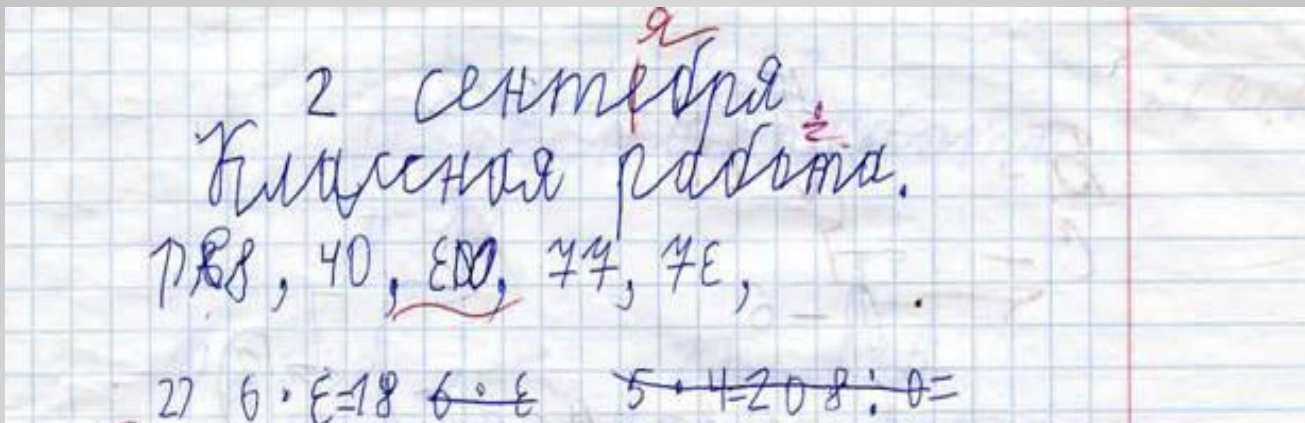 2 сентебря
Классная работа.
1) 88, 40, 300, 77, 73,
2) 6 · 3=18 6 · 3 5 · 4=20 8 : 0=